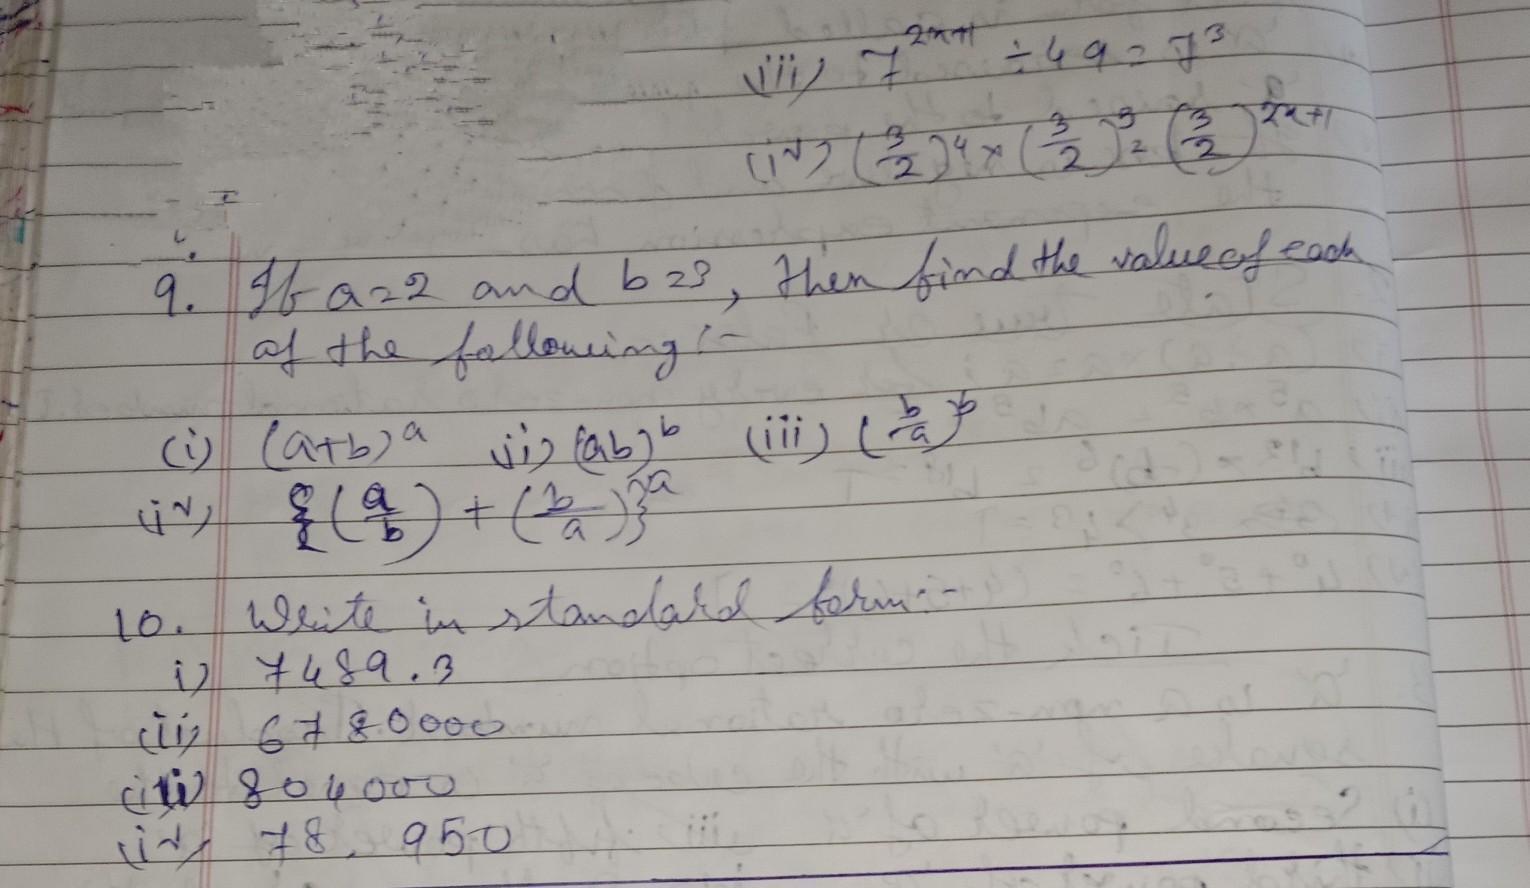 iii) 7^{2x+1} ÷ 49 = 7^3
(iv) (3/2)^4 × (3/2)^3 = (3/2)^{2x+1}
9. If a=2 and b=3, then find the value of each
of the following :-
(i) (a+b)^a ii) (ab)^b (iii) (b/a)^b
(iv) {(a/b) + (b/a)}^a
10. Write in standard form :-
i) 7489.3
(ii) 6780000
(iii) 804000
(iv) 78.950